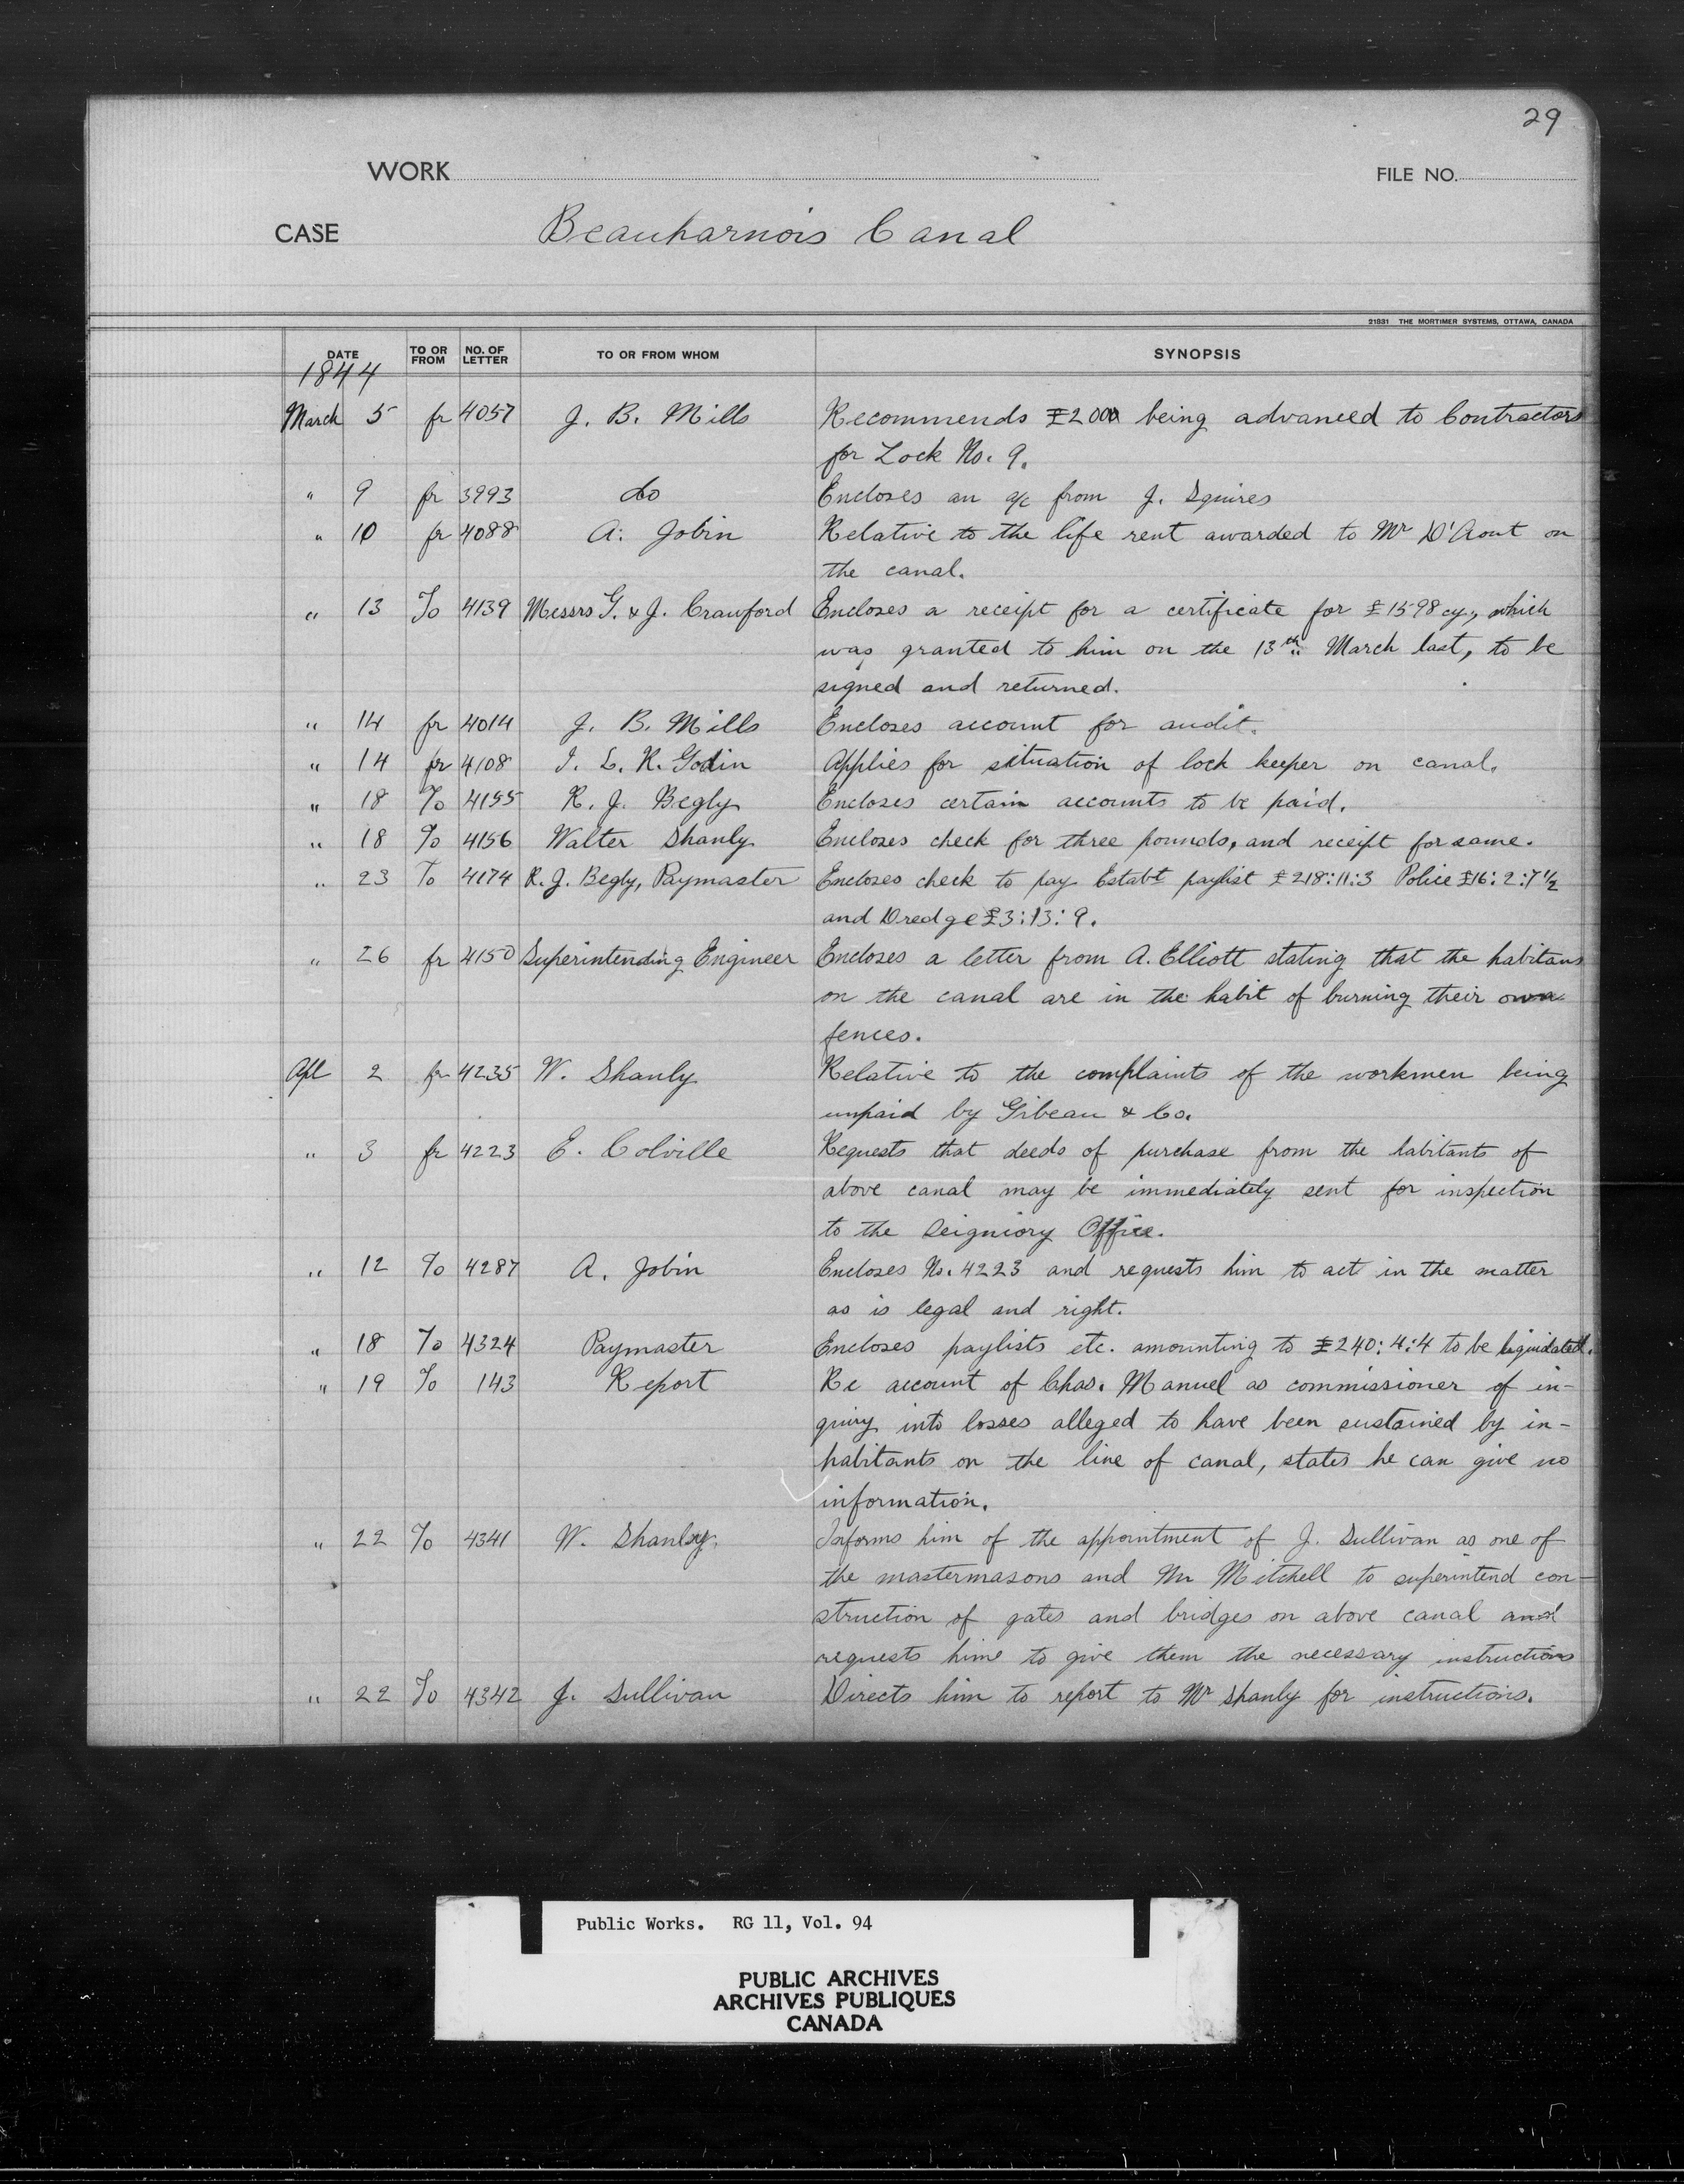 29
WORK
FILE NO.
CASE Beauharnois Canal
21931 THE MORTIMER SYSTEMS, OTTAWA, CANADA
DATE TO OR FROM NO. OF LETTER TO OR FROM WHOM SYNOPSIS
1844
March 5 fr 4057 J. B. Mills Recommends £2000 being advanced to Contractors
for Lock No. 9.
" 9 fr 3993 do Encloses an a/c from J. Squires
" 10 fr 4088 A. Jobin Relative to the life rent awarded to Mr D'Aout on
the canal.
" 13 To 4139 Messrs G. & J. Crawford Encloses a receipt for a certificate for £1598 cy, which
was granted to him on the 13th March last, to be
signed and returned.
" 14 fr 4014 J. B. Mills Encloses account for audit.
" 14 fr 4108 I. L. R. Godin Applies for situation of lock keeper on canal.
" 18 To 4155 R. J. Begly Encloses certain accounts to be paid.
" 18 To 4156 Walter Shanly Encloses check for three pounds, and receipt for same.
" 23 To 4174 R. J. Begly, Paymaster Encloses check to pay Estabt paylist £218:11:3 Police £16:2:7½
and Dredge £3:13:9.
" 26 fr 4150 Superintending Engineer Encloses a letter from A. Elliott stating that the habitans
on the canal are in the habit of burning their own
fences.
Apl 2 fr 4235 W. Shanly Relative to the complaints of the workmen being
unpaid by Gibeau & Co.
" 3 fr 4223 E. Colville Requests that deeds of purchase from the habitants of
above canal may be immediately sent for inspection
to the Seigniory Office.
" 12 To 4287 A. Jobin Encloses No. 4223 and requests him to act in the matter
as is legal and right.
" 18 To 4324 Paymaster Encloses paylists etc. amounting to £240:4:4 to be liquidated.
" 19 To 143 Report Re account of Chas. Manuel as commissioner of in-
quiry into losses alleged to have been sustained by in-
habitants on the line of canal, states he can give no
information.
" 22 To 4341 W. Shanly Informs him of the appointment of J. Sullivan as one of
the mastermasons and Mr Mitchell to superintend con-
struction of gates and bridges on above canal and
requests hime to give them the necessary instructions
" 22 To 4342 J. Sullivan Directs him to report to Mr Shanly for instructions.
Public Works. RG 11, Vol. 94
PUBLIC ARCHIVES
ARCHIVES PUBLIQUES
CANADA